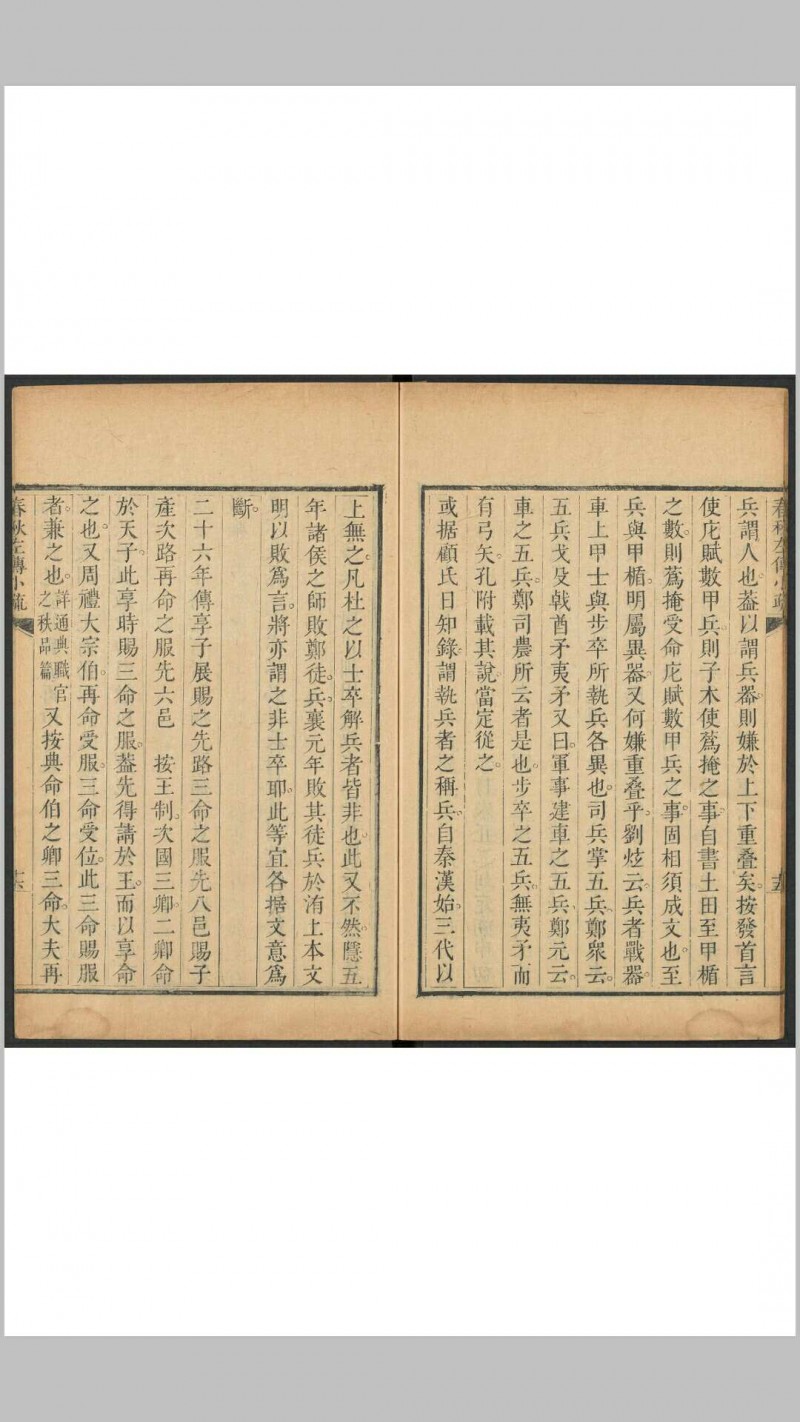 春秋左傳小疏
兵謂人也。葢以謂兵器則嫌於上下重疊矣。按發首言
使庀賦數甲兵。則子木使蒍掩之事自書土田至甲楯
之數。則蒍掩受命庀賦數甲兵之事。固相須成文也。至
兵與甲楯。明屬異器。又何嫌重疊乎。劉炫云。兵者戰器。
車上甲士與步卒所執兵各異也。司兵掌五兵。鄭衆云。
五兵戈殳戟酋矛夷矛。又曰。軍事建車之五兵。鄭元云。
車之五兵。鄭司農所云者是也。步卒之五兵。無夷矛而
有弓矢。孔附載其說。當定從之。
或据顧氏日知錄。謂執兵者之稱兵。自秦漢始。三代以
上無之。凡杜之以士卒解兵者皆非也。此又不然。隱五
年諸侯之師敗鄭徒兵。襄元年敗其徒兵於洧上。本文
明以敗爲言。將亦謂之非士卒耶。此等宜各据文意爲
斷。
二十六年傳享子展賜之先路三命之服先八邑賜子
產次路再命之服先六邑　按王制。次國三卿。二卿命
於天子。此享時賜三命之服。葢先得請於王。而以享命
之也。又周禮大宗伯。再命受服。三命受位。此三命賜服
者。兼之也。詳通典職官之秩品篇又按典命伯之卿三命。大夫再
春秋左傳小疏
十六